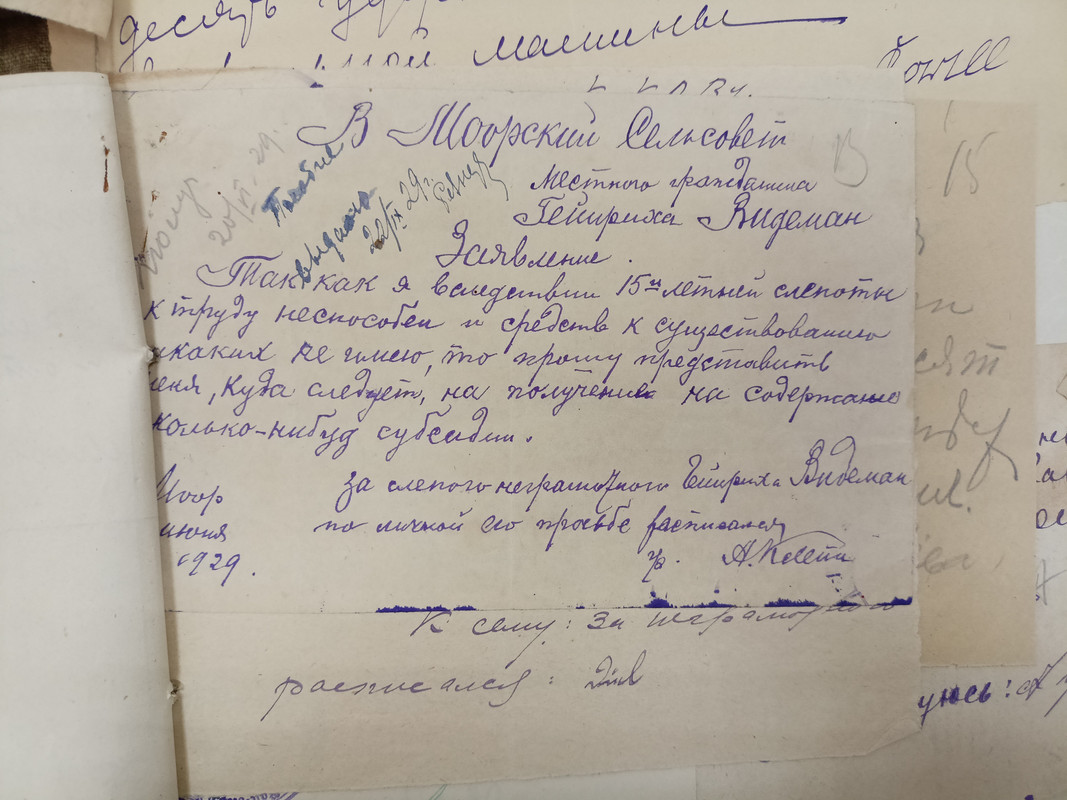 десять
ной машины
В Моорский Сельсовет
15
местного гражданина
Гейнриха Видеман
20/VI. 29.
Пособие
выдано
22/IX 29 г.
Заявление.
Так как я вследствии 15ти летней слепоты
к труду неспособен и средств к существованию
икаких не имею, то прошу представить
еня, куда следует, на получение на содержание
колько-нибуд субсидии.
Моор
июня
1929.
за слепого неграмотного Гейнриха Видеман
по личной его просьбе расписался
гр.
К сему: за неграмотного
расписался:
уюсь: